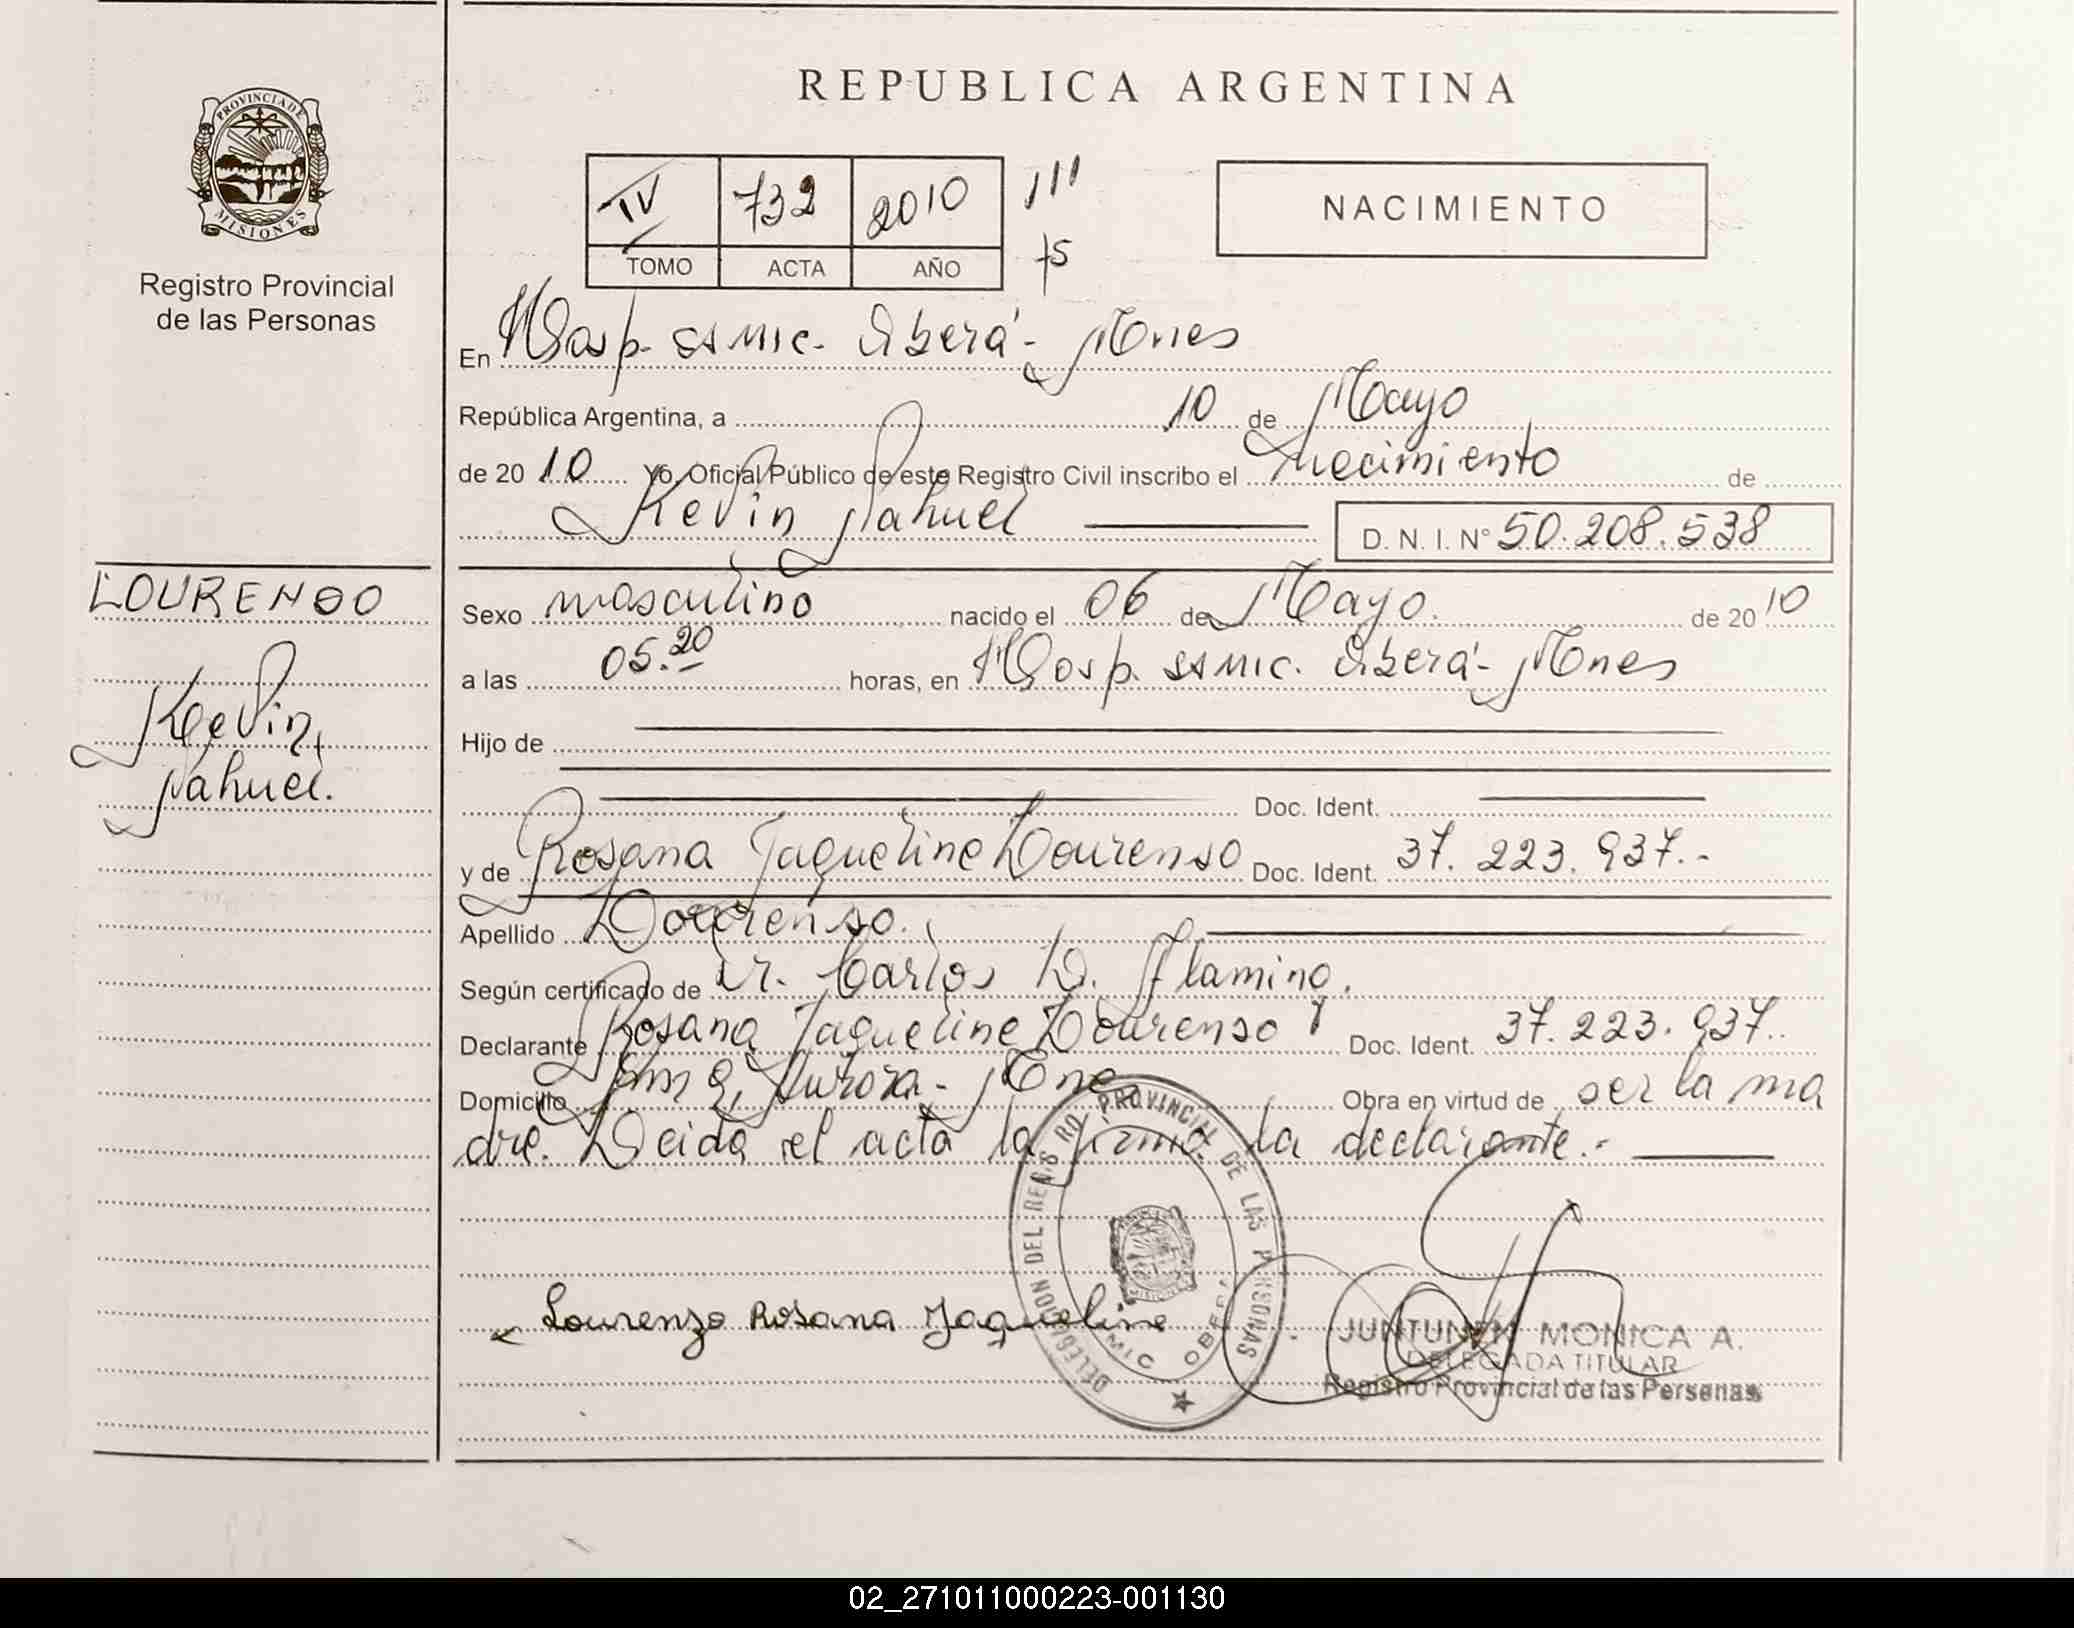 REPUBLICA ARGENTINA
PROVINCIA DE
MISIONES
Registro Provincial
de las Personas
IV 732 2010 111
TOMO ACTA AÑO 75
NACIMIENTO
En Hosp. SAMIC. Oberá - Mnes
República Argentina, a 10 de Mayo
de 2010 Yo, Oficial Público de este Registro Civil inscribo el nacimiento de
Kevin Nahuel D. N. I. N° 50.208.538
LOURENSO
Kevin
Nahuel.
Sexo masculino nacido el 06 de Mayo. de 2010
a las 05.20 horas, en Hosp. SAMIC. Oberá - Mnes
Hijo de
Doc. Ident.
y de Rosana Jaqueline Lourenso Doc. Ident. 37.223.937.-
Apellido Lourenso.
Según certificado de Dr. Carlos D. Flamino.
Declarante Rosana Jaqueline Lourenso Doc. Ident. 37.223.937..
Domicilio Km 9, Aurora - Mnes Obra en virtud de ser la ma
dre. Leida el acta la firma la declarante.-
Lourenzo Rosana Jaqueline
DELEGACION DEL REG PROVINCIAL DE LAS PERSONAS
JUNTUNEN MONICA A.
DELEGADA TITULAR
Registro Provincial de las Personas
02_271011000223-001130